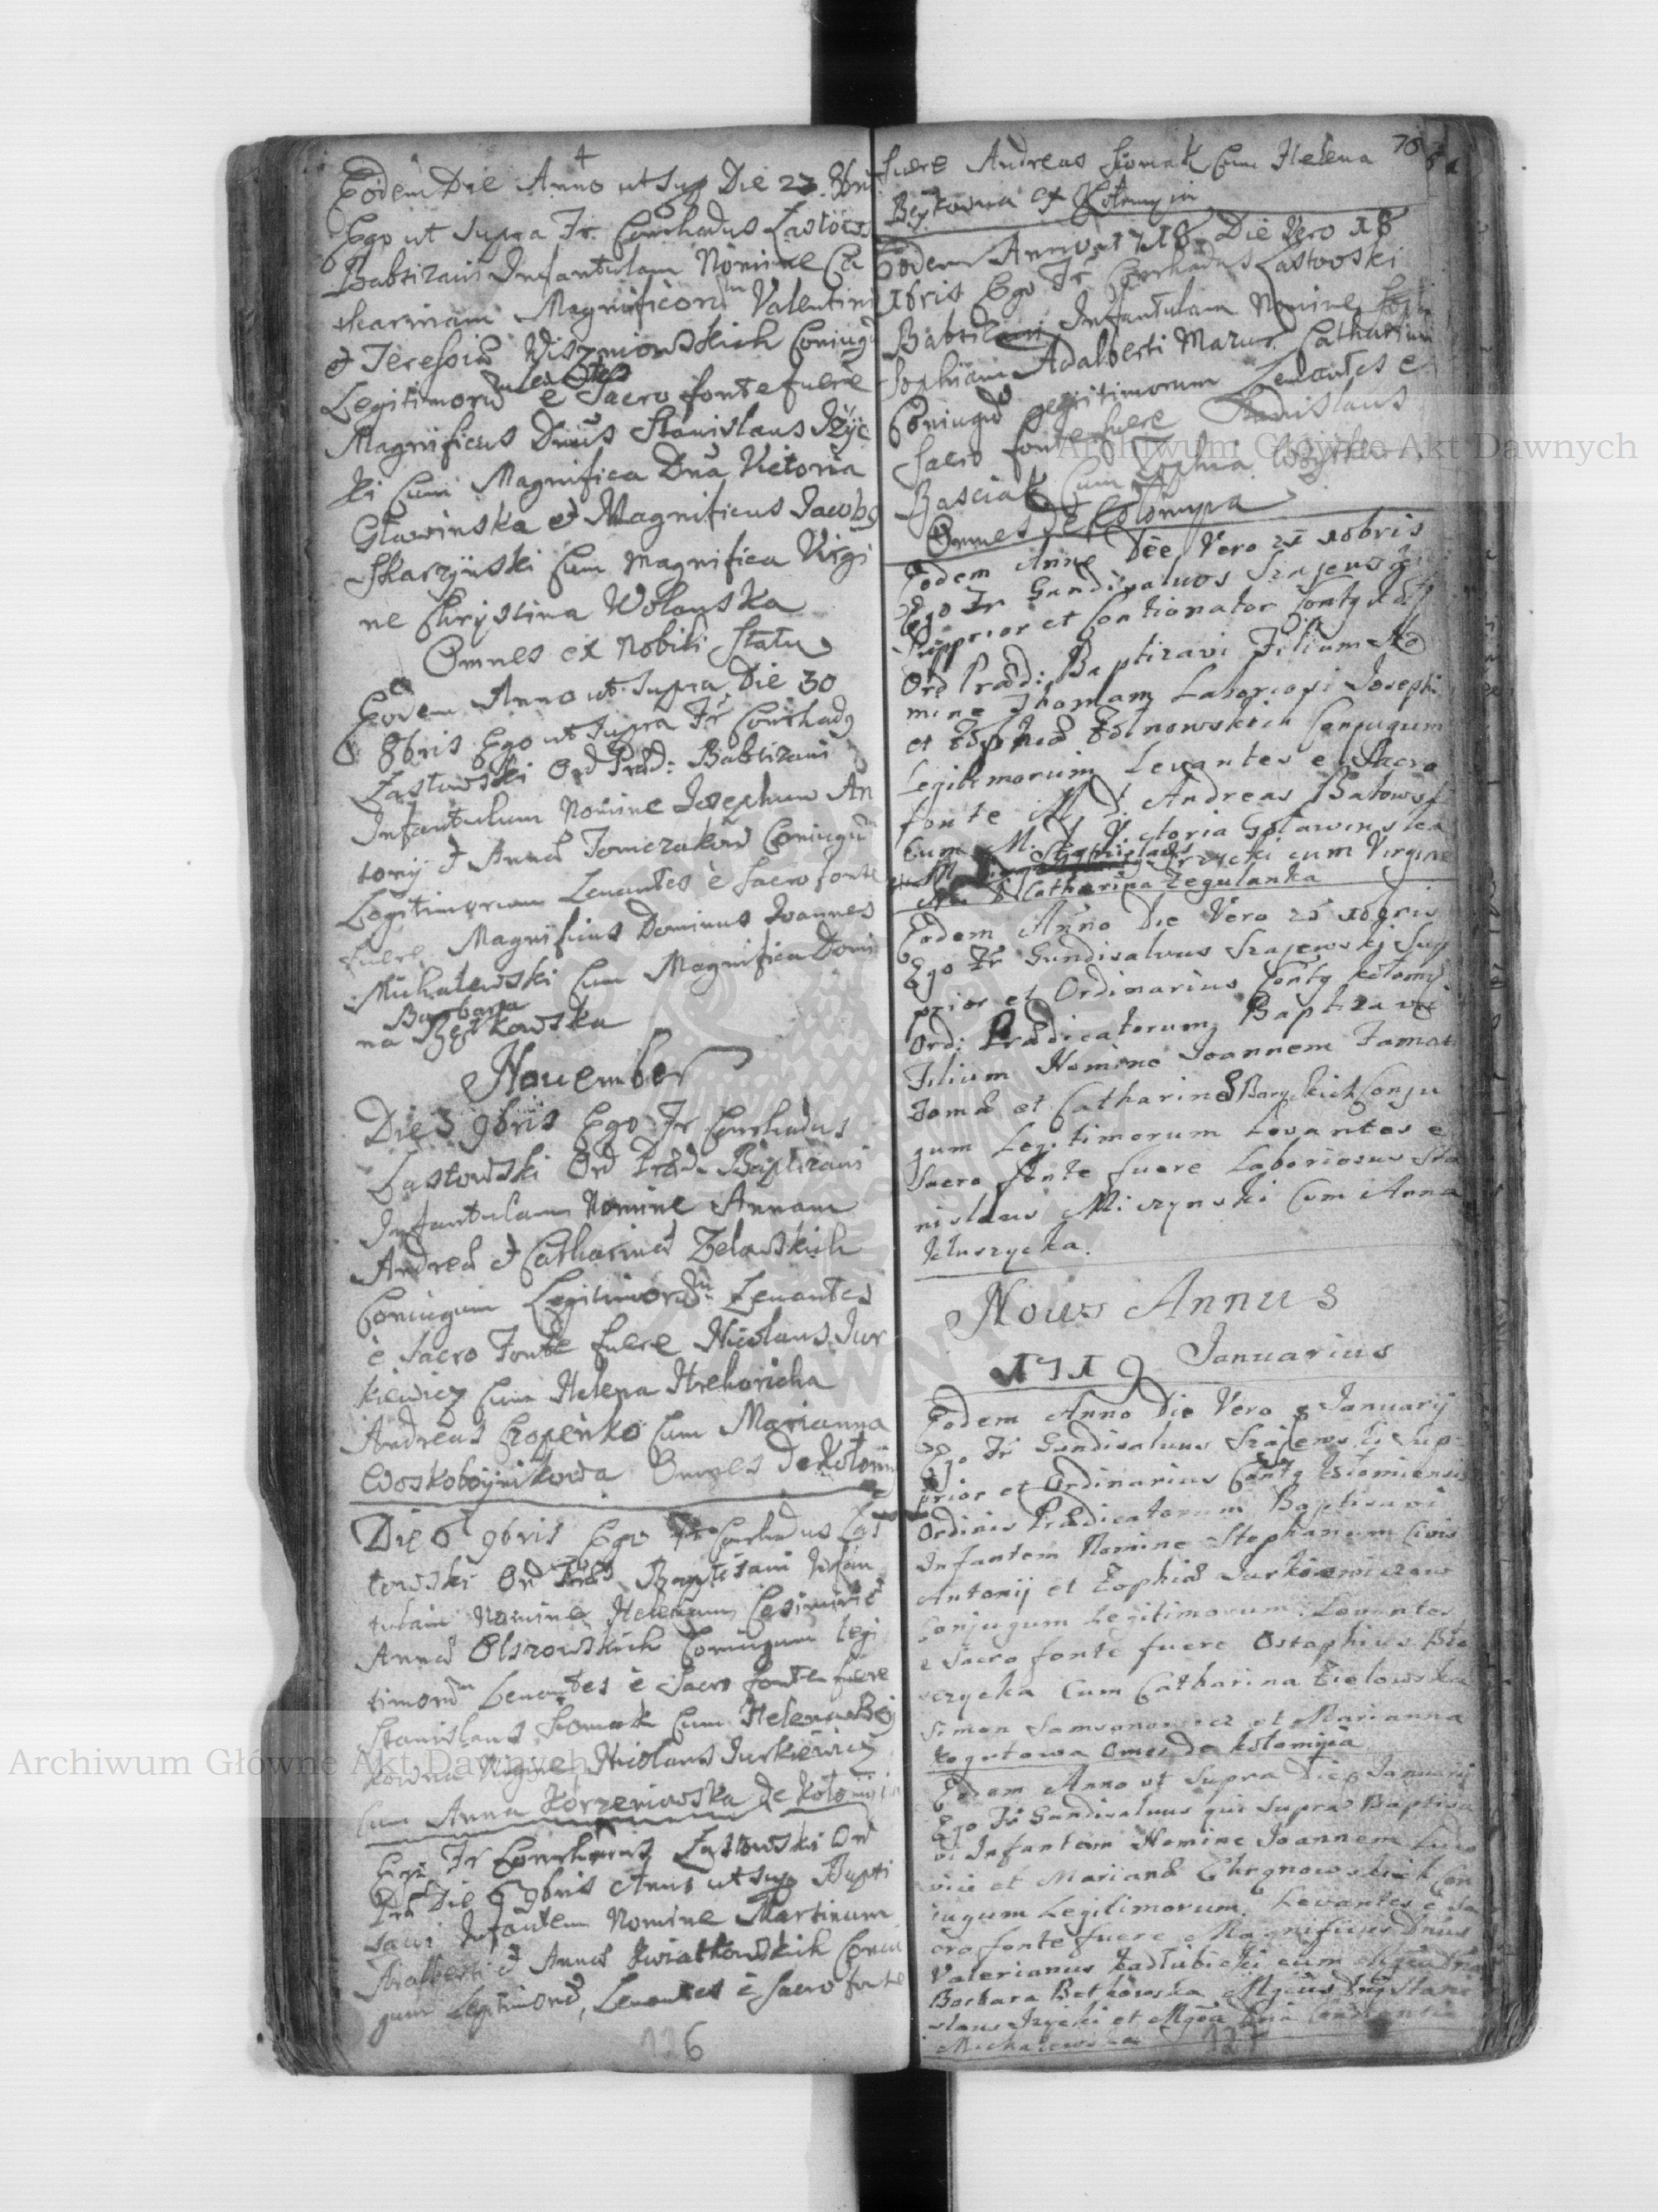 Eodem Die Anno ut Sup Die 27 8bris
Ego ut Supra Fr. Conrhadus Zastows
Babtizavi Infantulam Nomine Ca
tharinam Magnificorum Valentini
et Teresiæ Wiszniowskich Coniugũ
Legitimorũ Levantes e Sacro fonte fuere
Magnificus Dnus Stanislaus Iżyc
ki Cum Magnifica Dna Victoria
Gławinska et Magnificus Iacobg
Skarzynski Cum Magnifica Virgi
ne Chrystina Wolanska
Omnes ex Nobili Statu
Eodem Anno ut Supra Die 30
8bris Ego ut Supra Fr Conrhadg
Zastowski Ord Præd: Babtizavi
Infantulum Nomine Josephum An
tonij et Annæ Tomczaków Coniugum
Legitimorum Levantes è Sacro fonte
fuere Magnificus Dominus Joannes
Michalewski Cum Magnifica Domi
na Barbara Betkowska
November
Die 3 9bris Ego Fr Conrhadus
Zastowski Ord Præd. Baptizavi
Infantulam Nomine Annam
Andreæ et Catharinæ Zelawskich
Coniugum Legitimorũm Levantes
è Sacro Fonte fuere Nicolaus Jur
kiewicz Cum Helena Hrehoricha
Andreas Czopenko Cum Marianna
Woskoboynikowa Omnes de Kołomy
Die 6 9bris Ego Fr Conrhadus Zas
towski Ord Præd Baptisavi Infan
tulam Nomine Helenam Casimiri et
Annæ Olszowskich Coniugum legi
timorũm Levantes è Sacro fonte fuere
Stanislaus Siomak Cum Helena Bey
kowna Virgine Nicolaus Jurkiewicz
Cum Anna Korzeniowska de Kołomyi
Ego Fr Conrhadus Zastowski Ord
Præd Die 6 9bris Anno ut sup Bapti
savi Infantem Nomine Martinum
Adalberti et Annæ Kwiatkowskich Coniu
gum Legitimorũ, Levantes è Sacro fonte
126
70
fuere Andreas Siomak Cum Helena
Beykowna ex Kołomyia
Eodem Anno 1718 Die Vero 18
Xbris Ego Fr Conrhadus Zastowski
Infantulam Nomine
Sophiam Adalberti Mazur Catharinæ
Coniugũ Legitimorum Levantes e
Sacro fonte fuere Stanislaus
Basciak Cum Zophia
Omnes de Colomyia
Eodem Anno Die Vero 21 10bris
Ego Fr Gundisalvus Szajewski
Supprior et Contionator Contg
Ord Præd: Baptizavi Filium No
mine Thomam Laboriosi Josephi
et Zophiæ Conjugum
Legitimorum Levantes e Sacro
fonte M. D. Andreas Batowsk
Cum M. D. Victoria Goławinska
Stanislaus Irzycki cum Virgine
Catharina Zegulanka
Eodem Anno Die Vero 25 10bris
Ego Fr Gundisalvus Szajewski Sup
prior et Ordinarius Contg Kołomy
Ord: Prædicatorum, Baptizavi
Filium Nomine Joannem Famati
Tomæ et Catharinæ Baryckich Conju
gum Legitimorum Levantes e
Sacro fonte fuere Laboriosus Sta
nislaus Miszynski Cum Anna
Kłuszycka.
Novus Annus
1719 Januarius
Eodem Anno Die Vero Januarij
Ego Fr Gundisalvus Szajewski Sup
prior et Ordinarius Contg Kołomiensis
Ordinis Prædicatorum Baptisavi
Infantem Nomine Stephanum Civis
Antonij et Zophiæ Jurkiewiczow
Conjugum Legitimorum. Levantes
e Sacro fonte fuere Ostaphius Bła
szczycka Cum Catharina Zielowska
Simon Samsonowicz et Marianna
Kogutowa Omes de Kołomyia
Eodem Anno ut Supra Die Januarij
Ego Fr Gundisalvus qui Supra Baptisa
vi Infantem Nomine Joannem Ludo
vici et Mariannæ Chrzonowskich Con
iugum Legitimorum. Levantes è Sa
cro fonte fuere Magnificus Dnus
Valerianus Kadłubicki cum Mgca Dna
Barbara Betkowska Mgcus Dnus Stani
slaus Irzycki et Mgca Dna Constantia
Michalewska
127
Archiwum Główne Akt Dawnych
Archiwum Główne Akt Dawnych